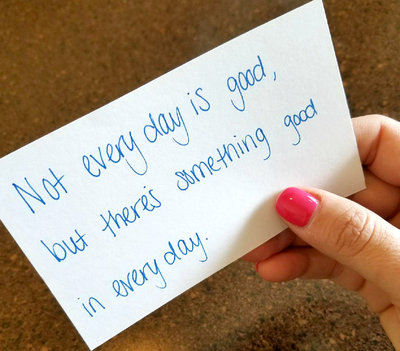 Not every day is good,
but there's something good
in every day.